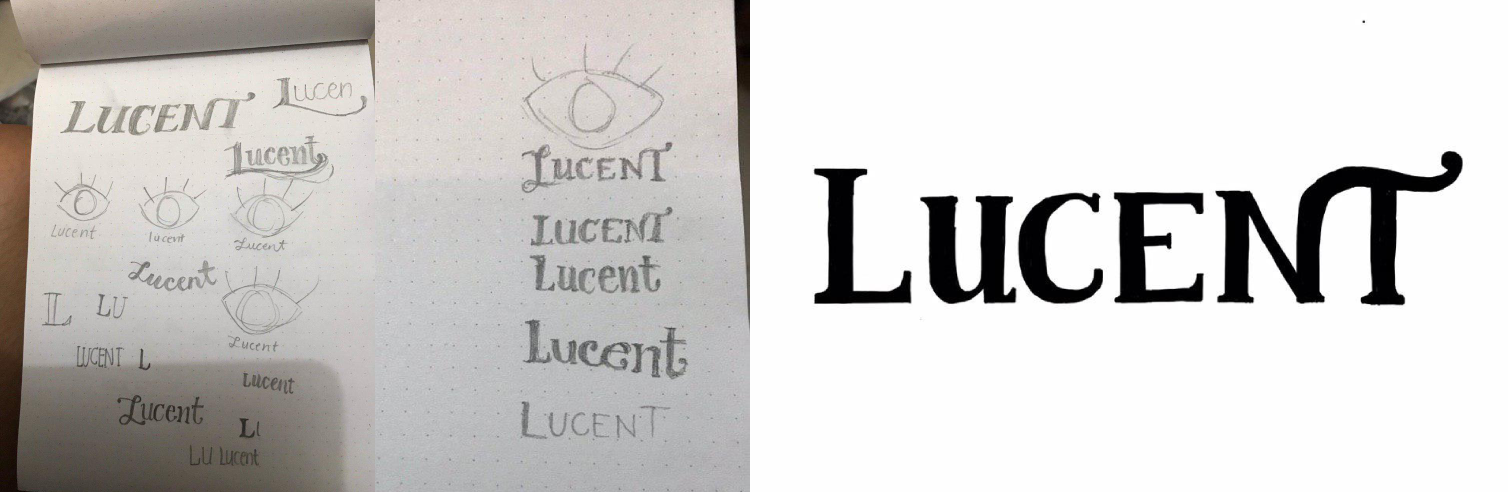 LUCENT
Lucen
Lucent
Lucent
lucent
Lucent
Lucent
L LU
Lucent
LUCENT L
Lucent
Lucent
L
LU Lucent
LUCENT
LUCENT
Lucent
Lucent
LUCENT
LUCENT